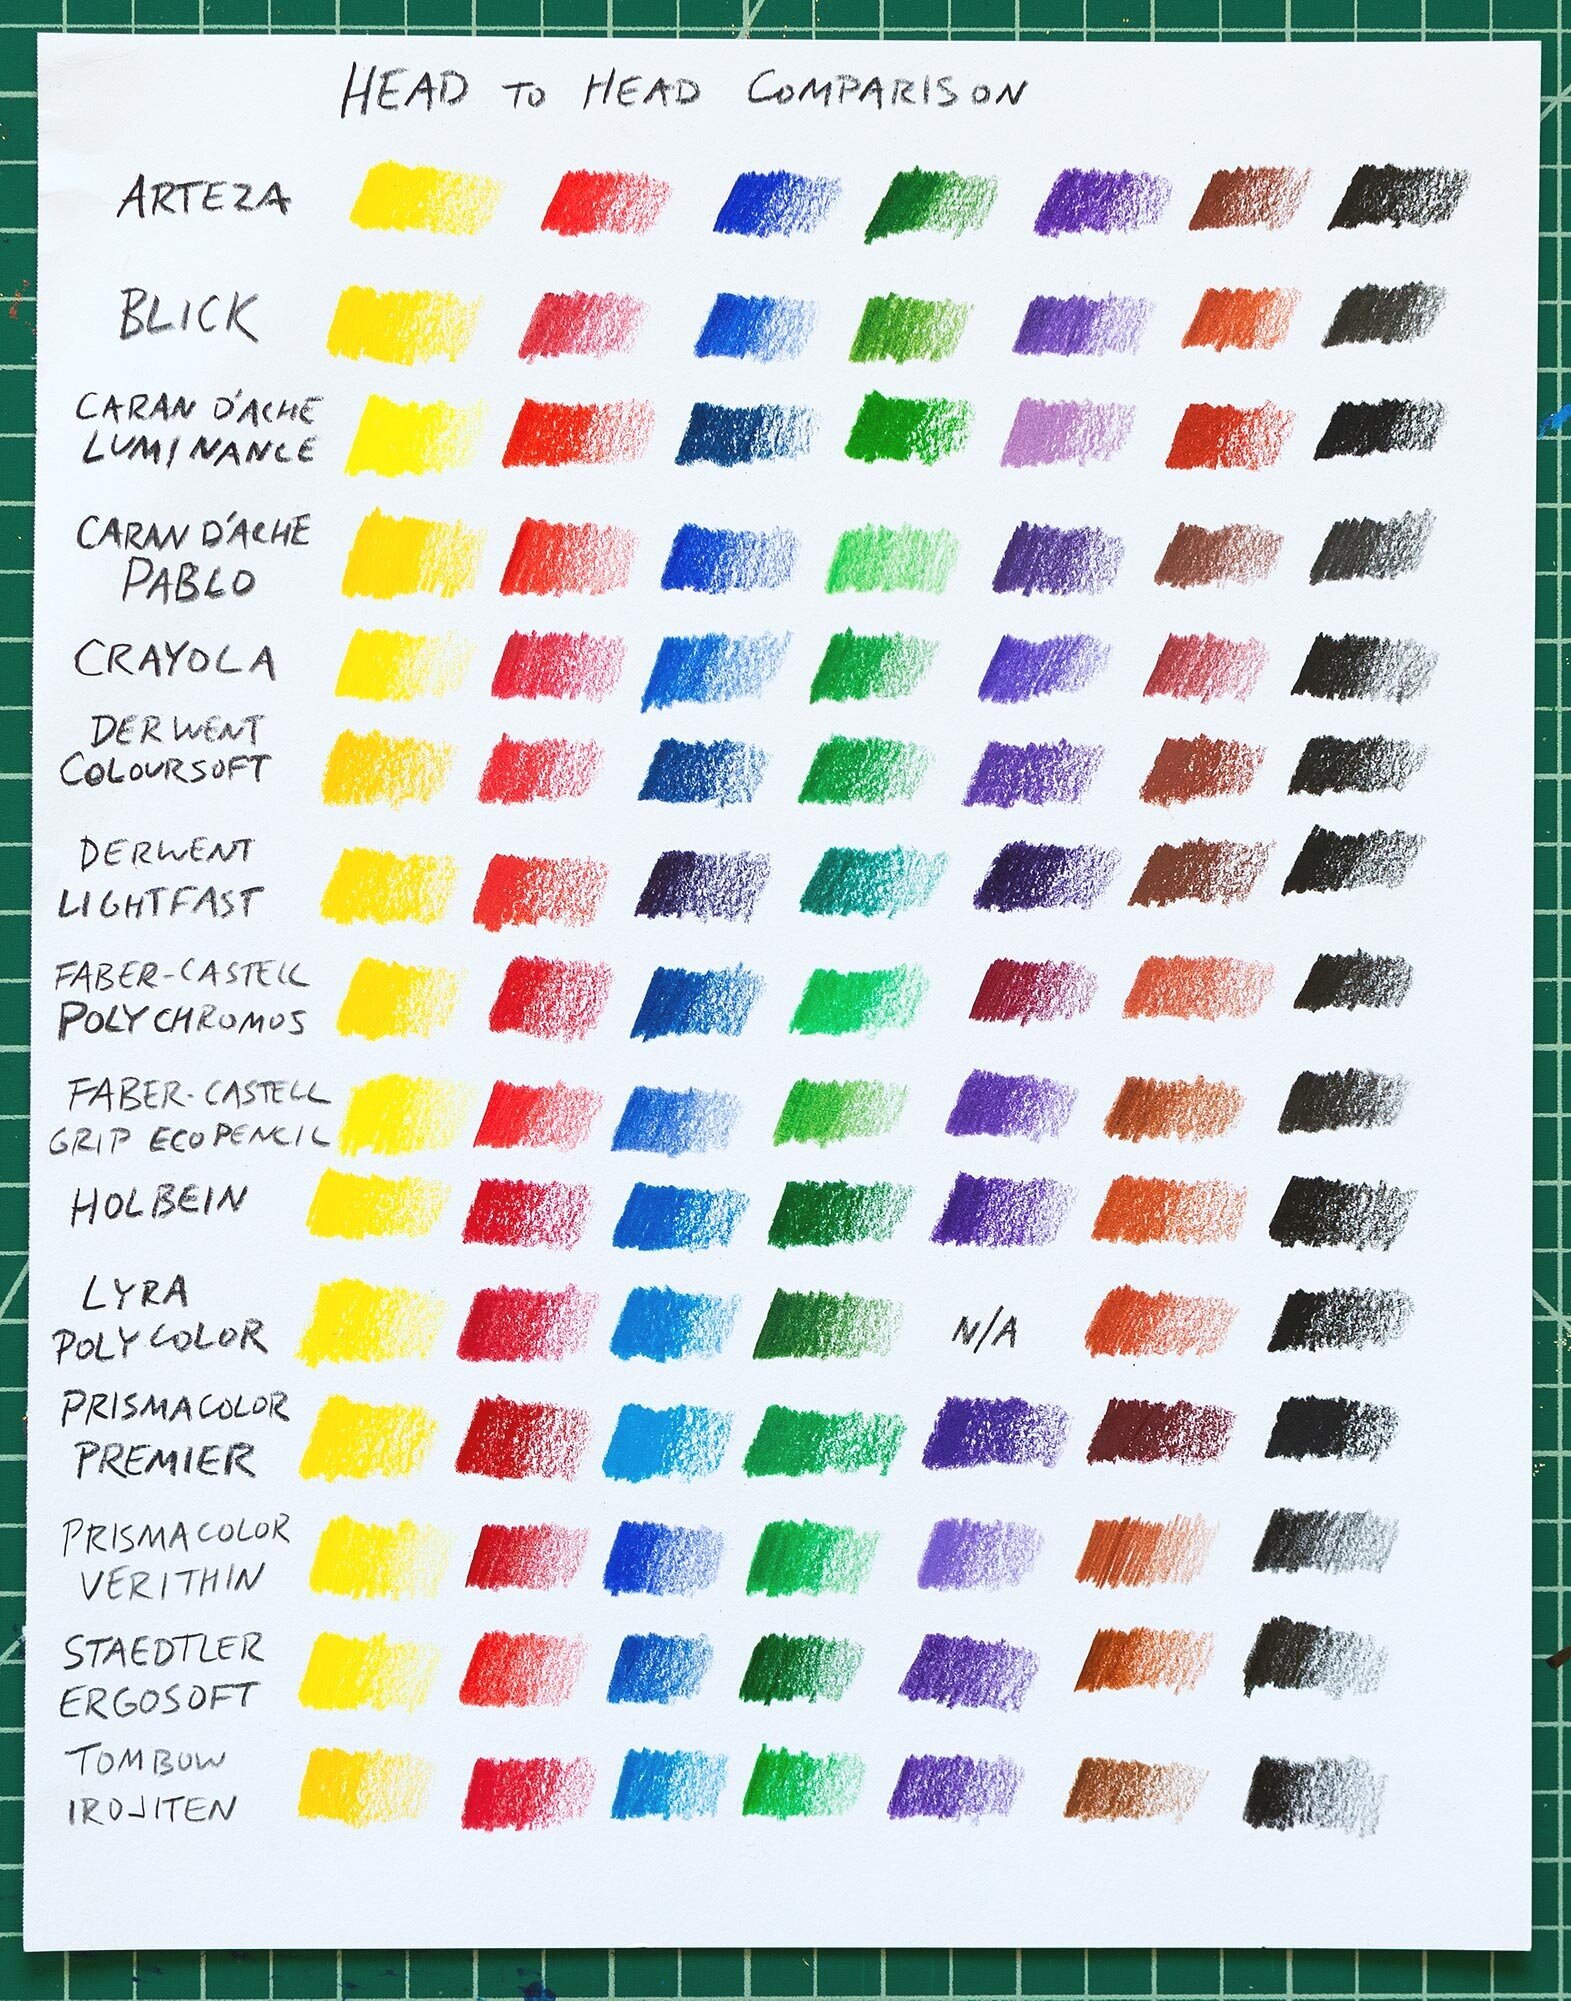 HEAD TO HEAD COMPARISON
ARTEZA
BLICK
CARAN D'ACHE
LUMINANCE
CARAN D'ACHE
PABLO
CRAYOLA
DERWENT
COLOURSOFT
DERWENT
LIGHTFAST
FABER-CASTELL
POLYCHROMOS
FABER-CASTELL
GRIP ECOPENCIL
HOLBEIN
LYRA
POLYCOLOR
N/A
PRISMACOLOR
PREMIER
PRISMACOLOR
VERITHIN
STAEDTLER
ERGOSOFT
TOMBOW
IROJITEN